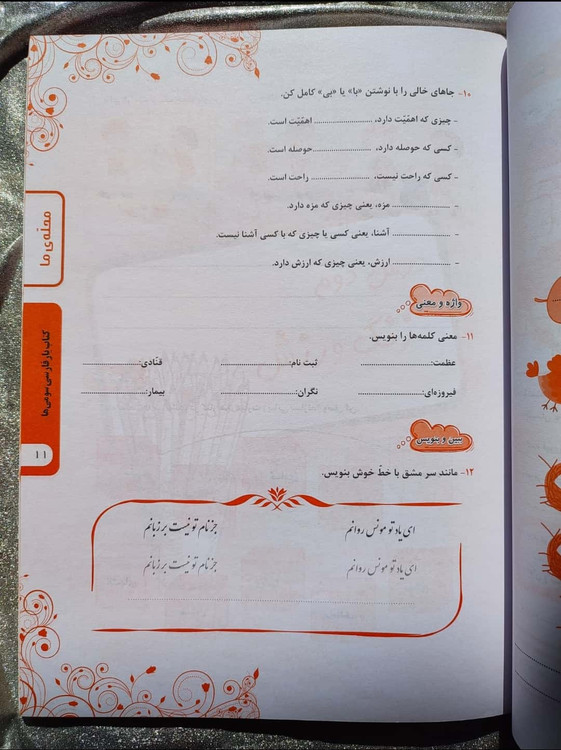 ۱۰- جاهای خالی را با نوشتن «با» یا «بی» کامل کن.
- چیزی که اهمّیّت دارد، .......................... اهمّیّت است.
- کسی که حوصله دارد، .......................... حوصله است.
- کسی که راحت نیست، .......................... راحت است.
- .......................... مزه، یعنی چیزی که مزه دارد.
- .......................... آشنا، یعنی کسی یا چیزی که با کسی آشنا نیست.
- .......................... ارزش، یعنی چیزی که ارزش دارد.
واژه و معنی
۱۱- معنی کلمه‌ها را بنویس.
عظمت: .......................... ثبت نام: .......................... قنّادی: ..........................
فیروزه‌ای: .......................... نگران: .......................... بیمار: ..........................
ببین و بنویس
۱۲- مانند سر مشق با خطّ خوش بنویس.
ای یاد تو مونس روانم جز نام تو نیست بر زبانم
ای یاد تو مونس روانم جز نام تو نیست بر زبانم
محلّه‌ی ما
کتاب یار فارسی سومی‌ها
۱۱